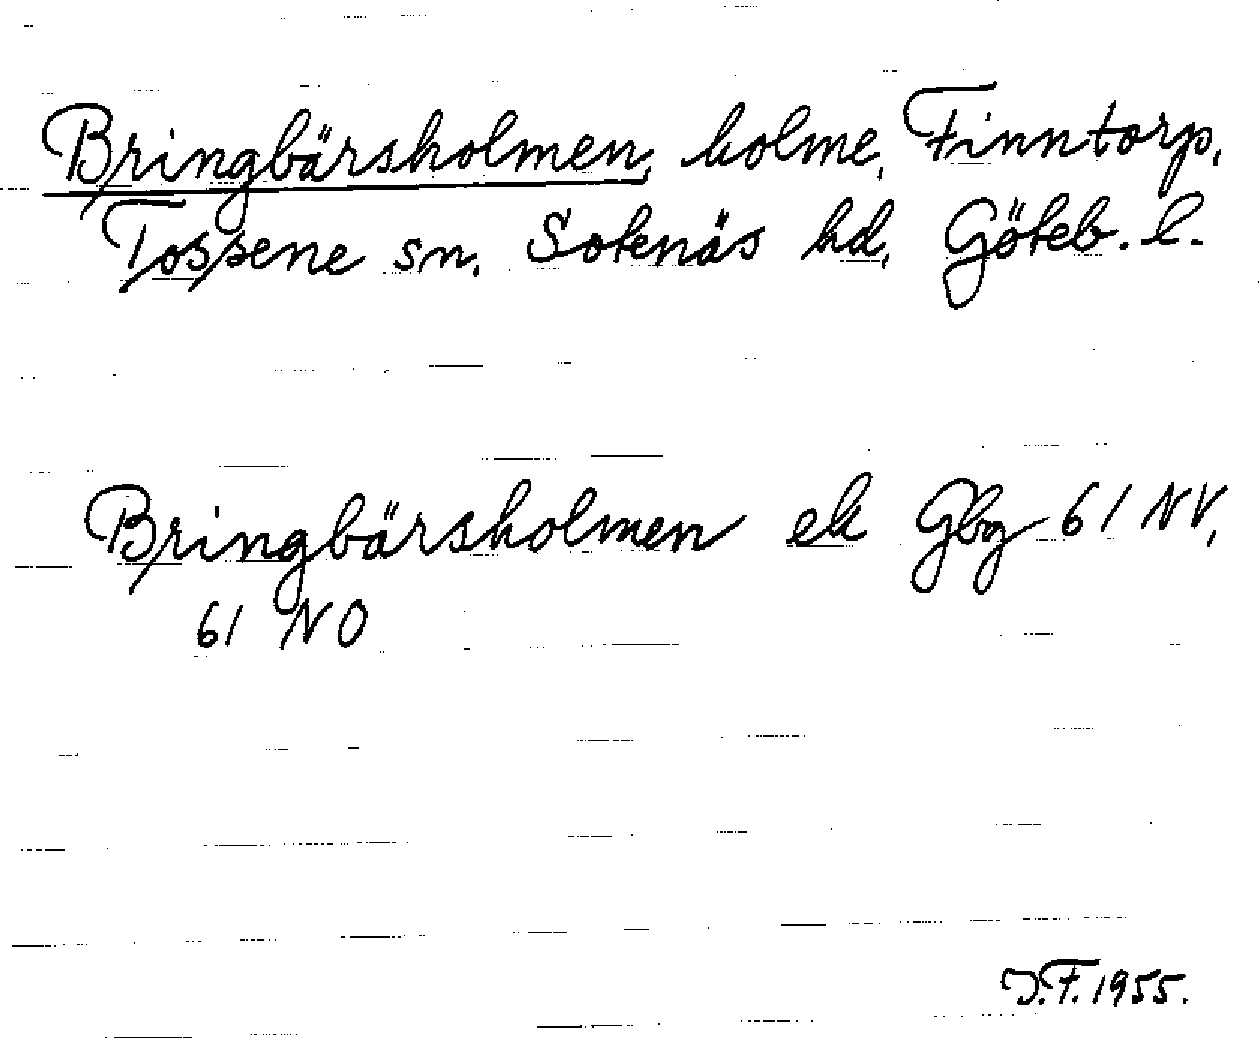 Bringbärsholmen, holme, Finntorp,
Tossene sn. Sotenäs hd, Göteb. l.
Bringbärsholmen ek Gbg 61 NV,
61 NO
J.F. 1955.